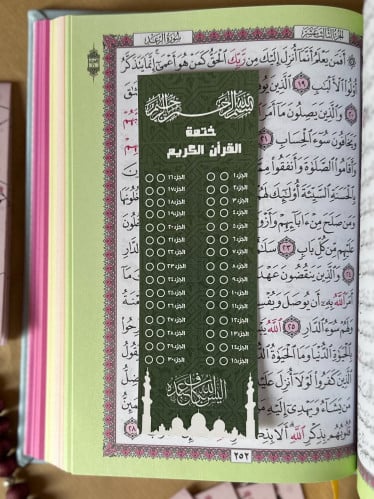 سُورَةُ الرَّعْدِ
الجزء الثالث عشر
أَفَمَن يَعْلَمُ أَنَّمَا أُنزِلَ إِلَيْكَ مِن رَّبِّكَ الْحَقُّ كَمَنْ هُوَ أَعْمَىٰ إِنَّمَا يَتَذَكَّرُ
أُولُوا الْأَلْبَابِ ١٩ الَّذِينَ
وَالَّذِينَ يَصِلُونَ مَا
وَيَخَافُونَ سُوءَ الْحِسَابِ ٢١
وَأَقَامُوا الصَّلَاةَ وَأَنفَقُوا
بِالْحَسَنَةِ السَّيِّئَةَ أُولَٰئِكَ
وَمَن صَلَحَ مِنْ آبَائِهِمْ وَأَزْوَاجِهِمْ
عَلَيْهِم مِّن كُلِّ بَابٍ ٢٣ سَلَامٌ
٢٤ وَالَّذِينَ يَنقُضُونَ عَهْدَ
اللَّهُ بِهِ أَن يُوصَلَ وَيُفْسِدُونَ
وَلَهُمْ سُوءُ الدَّارِ ٢٥ اللَّهُ
بِالْحَيَاةِ الدُّنْيَا وَمَا الْحَيَاةُ الدُّنْيَا
الَّذِينَ كَفَرُوا لَوْلَا أُنزِلَ عَلَيْهِ
مَن يَشَاءُ وَيَهْدِي إِلَيْهِ
قُلُوبُهُم بِذِكْرِ اللَّهِ أَلَا بِذِكْرِ ٢٨
٢٥٢
بسم الله الرحمن الرحيم
ختمة
القرآن الكريم
الجزء ١ الجزء ١٦
الجزء ٢ الجزء ١٧
الجزء ٣ الجزء ١٨
الجزء ٤ الجزء ١٩
الجزء ٥ الجزء ٢٠
الجزء ٦ الجزء ٢١
الجزء ٧ الجزء ٢٢
الجزء ٨ الجزء ٢٣
الجزء ٩ الجزء ٢٤
الجزء ١٠ الجزء ٢٥
الجزء ١١ الجزء ٢٦
الجزء ١٢ الجزء ٢٧
الجزء ١٣ الجزء ٢٨
الجزء ١٤ الجزء ٢٩
الجزء ١٥ الجزء ٣٠
أليس الله بكاف عبده